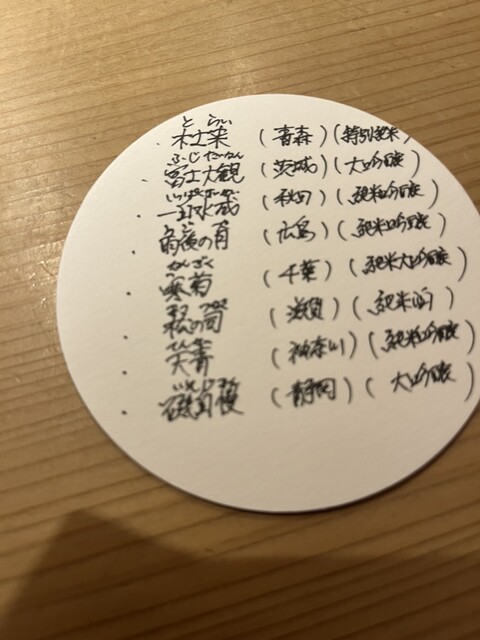 とらい
・杜来 (青森)(特別純米)
ふじたいかん
・富士大観 (茨城)(大吟醸)
・一白水成 (秋田)(純米吟醸)
うご
・雨後の月 (広島)(純米吟醸)
かんぎく
・寒菊 (千葉)(純米大吟醸)
・松の司 (滋賀)(純米酒)
・天青 (神奈川)(純米吟醸)
・磯自慢 (静岡)(大吟醸)